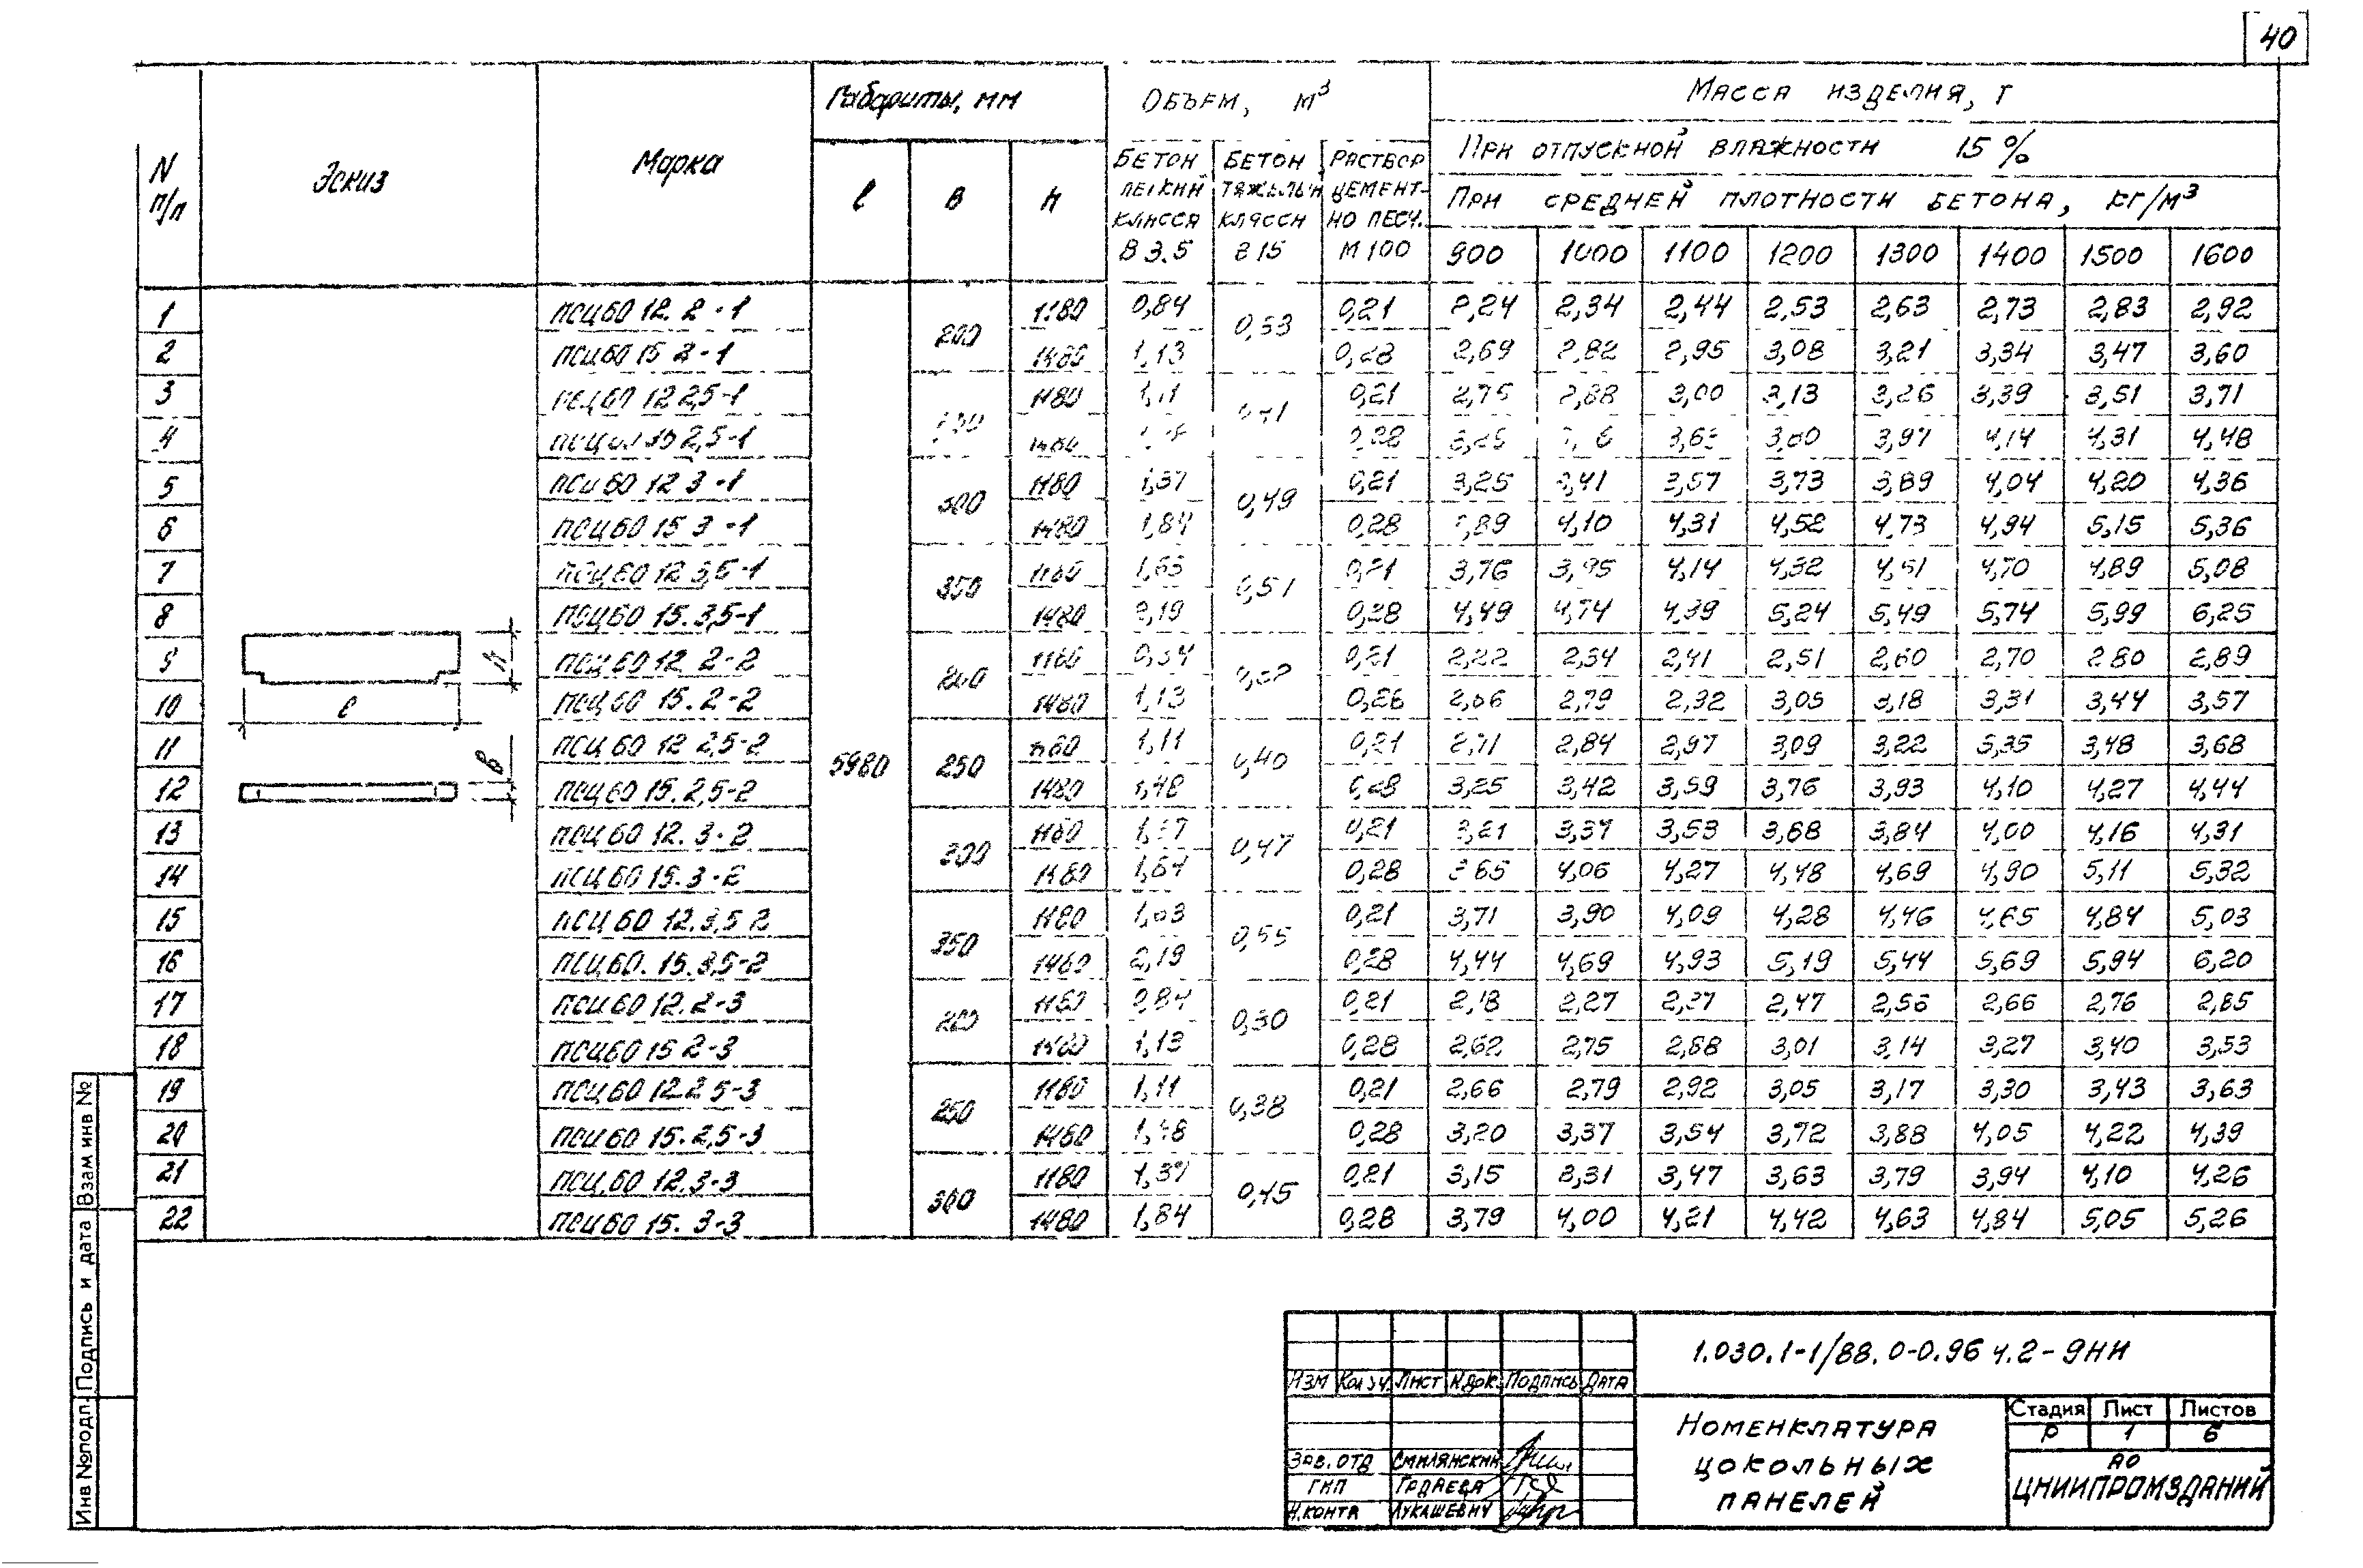 40
N п/п Эскиз Марка Габариты, мм ОБЪЕМ, М³ МАССА ИЗДЕЛИЯ, Т
ПРИ ОТПУСКНОЙ ВЛАЖНОСТИ 15 %
ПРИ СРЕДНЕЙ ПЛОТНОСТИ БЕТОНА, КГ/М³
ℓ В Н
БЕТОН ЛЕГКИЙ КЛАССА В 3.5
БЕТОН ТЯЖЕЛЫЙ КЛАССА В 15
РАСТВОР ЦЕМЕНТНО ПЕСЧ. М 100
900 1000 1100 1200 1300 1400 1500 1600
1 ПСЦ 60 12. 2-1 200 1180 0,84 0,33 0,21 2,24 2,34 2,44 2,53 2,63 2,73 2,83 2,92
2 ПСЦ 60 15 2-1 1480 1,13 0,28 2,69 2,82 2,95 3,08 3,21 3,34 3,47 3,60
3 ПСЦ 60 12 2,5-1 1180 0,21 2,75 2,88 3,00 3,13 3,26 3,39 3,51 3,71
4 2,5-1 0,28 3,97 4,14 4,31 4,48
5 ПСЦ 60 12 3-1 300 1180 1,37 0,49 0,21 3,25 3,41 3,57 3,73 3,89 4,04 4,20 4,36
6 ПСЦ 60 15 3-1 1480 1,84 0,28 3,89 4,10 4,31 4,52 4,73 4,94 5,15 5,36
7 ПСЦ 60 12 3,5-1 350 1180 0,51 0,21 3,76 3,95 4,14 4,32 4,51 4,70 4,89 5,08
8 ПСЦ 60 15. 3,5-1 1480 2,19 0,28 4,49 4,74 4,99 5,24 5,49 5,74 5,99 6,25
9 ПСЦ 60 12 2-2 200 1180 0,84 0,21 2,22 2,34 2,41 2,51 2,60 2,70 2 80 2,89
10 ПСЦ 60 15. 2-2 1480 1,13 0,28 2,66 2,79 2,92 3,05 3,18 3,31 3,44 3,57
11 ПСЦ 60 12 2,5-2 5980 250 1180 1,11 0,40 0,21 2,71 2,84 2,97 3,09 3,22 3,35 3,48 3,68
12 ПСЦ 60 15. 2,5-2 1480 1,48 0,28 3,25 3,42 3,59 3,76 3,93 4,10 4,27 4,44
13 ПСЦ 60 12. 3-2 300 1180 1,37 0,47 0,21 3,21 3,37 3,53 3,68 3,84 4,00 4,16 4,31
14 ПСЦ 60 15. 3-2 1480 1,84 0,28 3 85 4,06 4,27 4,48 4,69 4,90 5,11 5,32
15 ПСЦ 60 12. 3,5 2 350 1180 0,55 0,21 3,71 3,90 4,09 4,28 4,46 4,65 4,84 5,03
16 ПСЦ 60. 15. 3,5-2 1480 2,19 0,28 4,44 4,69 4,93 5,19 5,44 5,69 5,94 6,20
17 ПСЦ 60 12. 2-3 200 1180 0,84 0,30 0,21 2,18 2,27 2,37 2,47 2,56 2,66 2,76 2,85
18 ПСЦ 60 15 2-3 1480 1,13 0,28 2,62 2,75 2,88 3,01 3,14 3,27 3,40 3,53
19 ПСЦ 60 12 2 5-3 250 1180 1,11 0,38 0,21 2,66 2,79 2,92 3,05 3,17 3,30 3,43 3,63
20 ПСЦ 60 15. 2,5-3 1480 1,48 0,28 3,20 3,37 3,54 3,72 3,88 4,05 4,22 4,39
21 ПСЦ 60 12. 3-3 300 1180 1,37 0,45 0,21 3,15 3,31 3,47 3,63 3,79 3,94 4,10 4,26
22 ПСЦ 60 15. 3-3 1480 1,84 0,28 3,79 4,00 4,21 4,42 4,63 4,84 5,05 5,26
h
ℓ
В
Взам инв №
Подпись и дата
Инв №подл.
1.030.1-1/88. 0-0.96 ч.2-9НИ
ИЗМ Кол уч. Лист №док. Подпись Дата
НОМЕНКЛАТУРА
ЦОКОЛЬНЫХ
ПАНЕЛЕЙ
Стадия Лист Листов
Р 1 6
ЗАВ. ОТД СМИЛЯНСКИЙ
ГИП
Н.КОНТР ЛУКАШЕВИЧ
АО
ЦНИИПРОМЗДАНИЙ